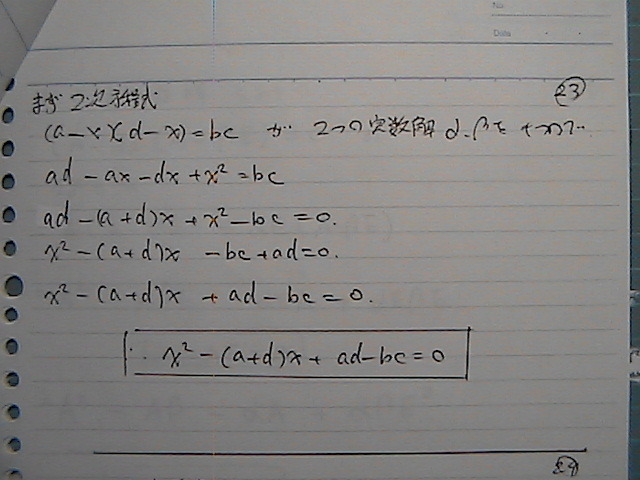 No.
Date
㉓
まず 2次方程式
(a-x)(d-x)=bc が 2つの実数解 α、βを もつので
ad-ax-dx+x²=bc
ad-(a+d)x+x²-bc=0.
x²-(a+d)x -bc+ad=0.
x²-(a+d)x +ad-bc=0.
∴ x²-(a+d)x+ad-bc=0
㉔